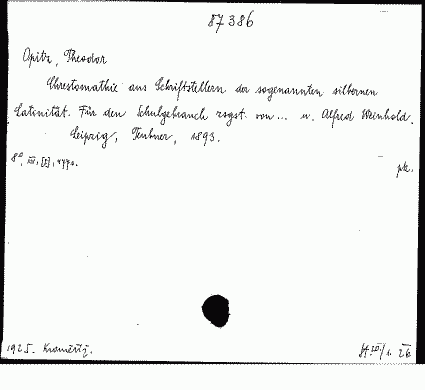 87386
Opitz, Theodor
Chrestomathie aus Schriftstellern der sogenannten silbernen
Latinität. Für den Schulgebrauch zsgst. von... u. Alfred Weinhold.
Leipzig, Teubner, 1893.
8°, XII, [2],
pk.
1925.
26